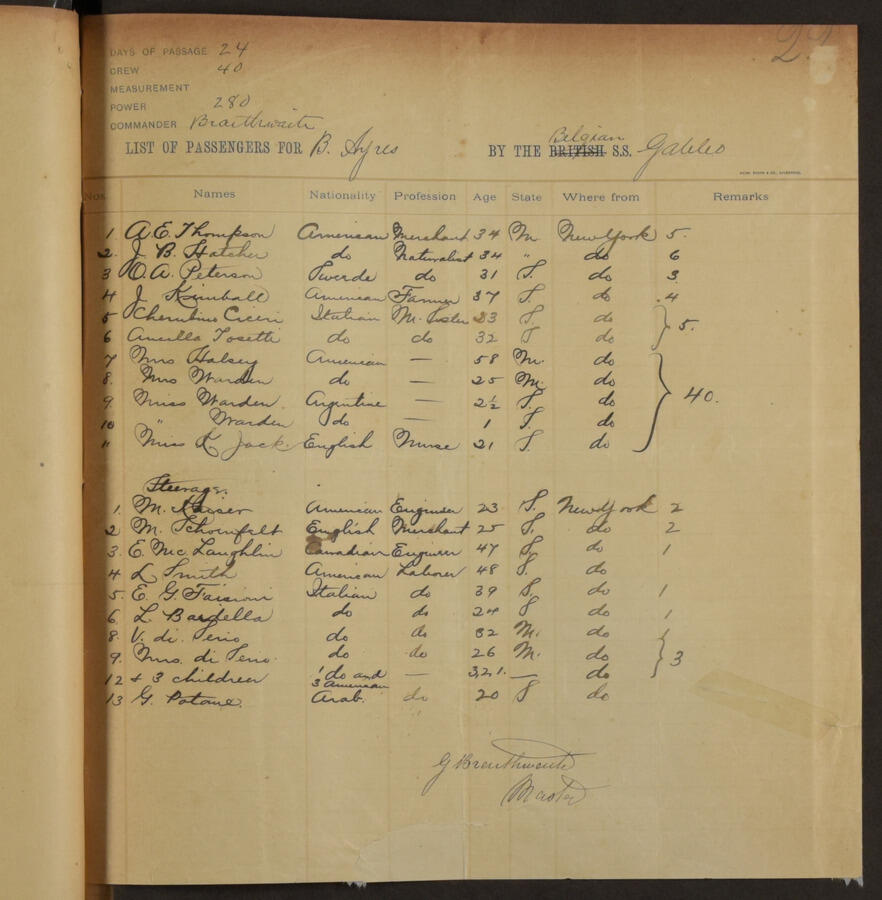 22
DAYS OF PASSAGE 24
CREW 40
MEASUREMENT
POWER 280
COMMANDER Braithwaite
LIST OF PASSENGERS FOR B. Ayres BY THE BRITISH Belgian S.S. Galileo
Nos. Names Nationality Profession Age State Where from Remarks
1 A. E. Thompson American Merchant 34 M. New York 5.
2. J. B. Hatcher do Naturalist 34 " do 6
3 O. A. Peterson Swede do 31 S. do 3
4 J. Kimball American Farmer 37 S. do .4
5 Cherubino Italian M. 33 S do
6 Tosetti do do 32 S do 5.
7 Mrs Halsey American — 58 M. do
8. Mrs Warden do — 25 M. do
9. Miss Warden Argentine — 2½ S. do 40.
10 " Warden do — 1 S. do
11 Miss K. Jack. English Nurse 21 S. do
Steerage.
1. M. Kaiser American Engineer 23 S. New York 2
2 M. English Merchant 25 S. do 2
3. E. Mc Laughlin Canadian Engineer 47 S do 1
4 L Smith American Laborer 48 S. do
5. E. G. Italian do 39 S. do 1
6 L. Bardella do do 24 S do 1
8. V. di Serio do do 32 M. do 1
9. Mrs. di Serio do do 26 M. do 3
12 + 3 children 1 do and 3 American — 3,2,1. — do
13 G. Arab. do 20 S do
G Braithwaite
Master